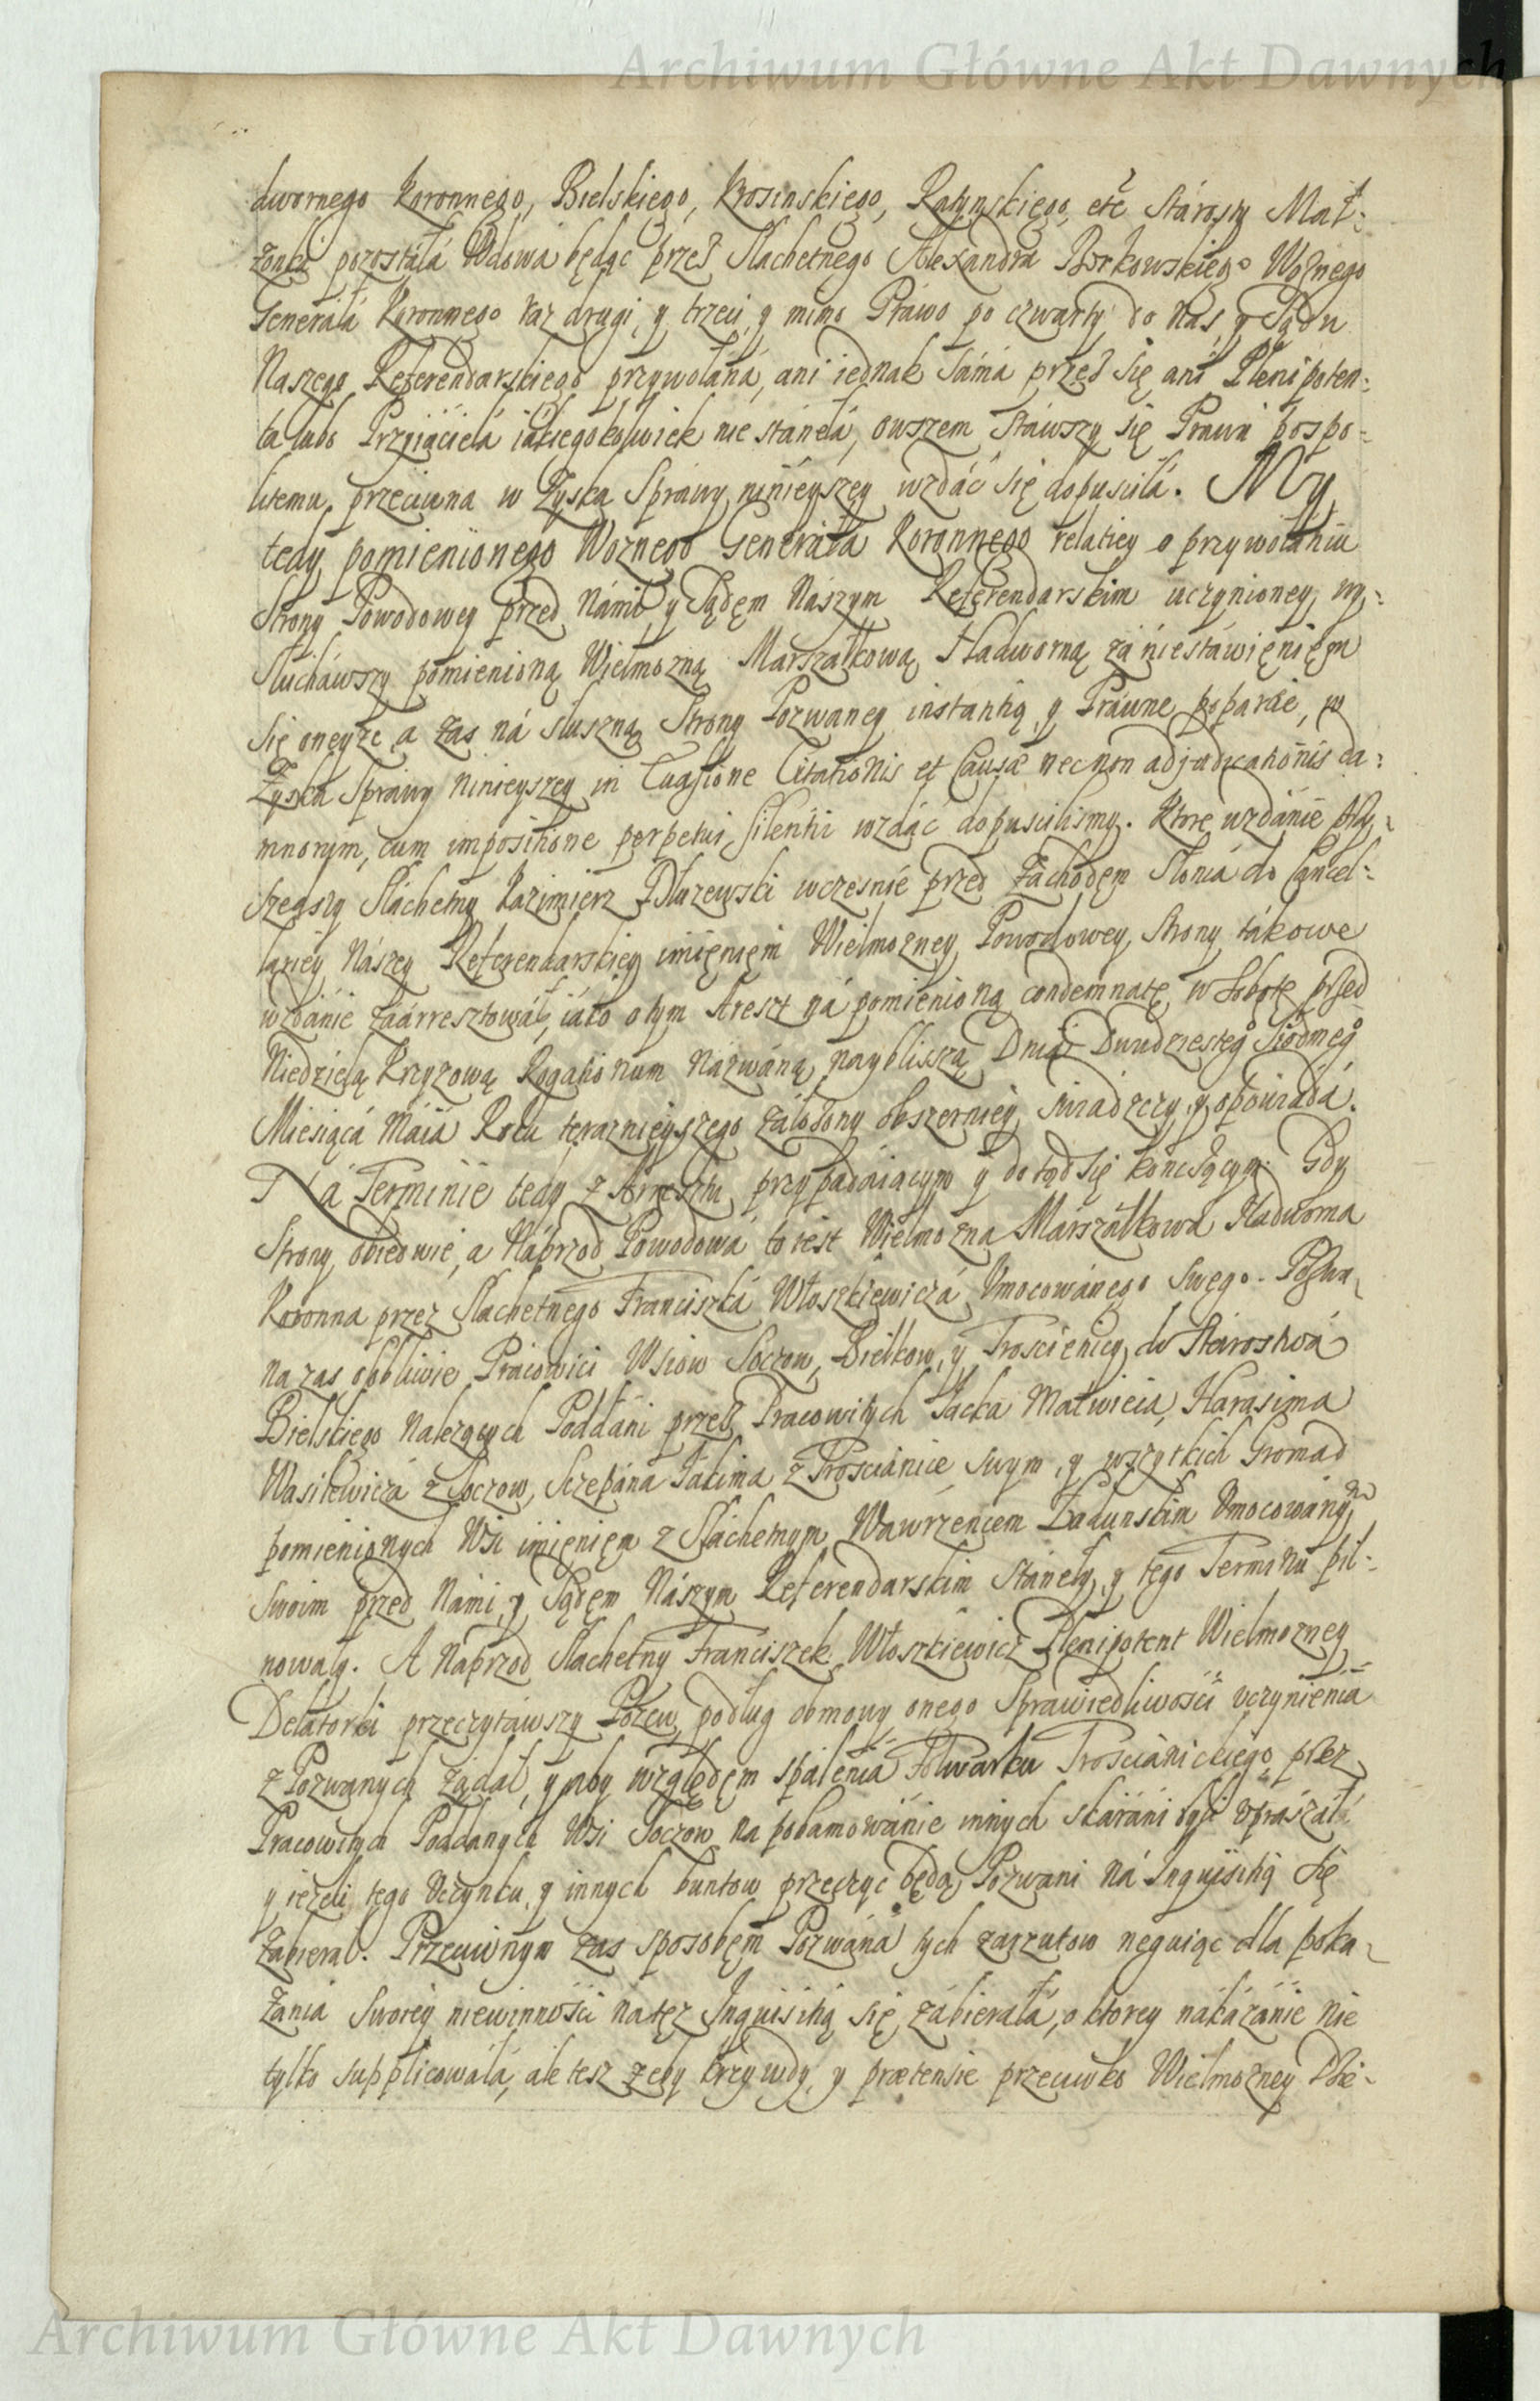 Archiwum Główne Akt Dawnych
dwornego Koronnego, Bielskiego, Krosinskiego, Ratynskiego, etc Stárosty Mał:
żonka pozostáła Wdowa będąc przez Slachetnego Alexandra Borkowskiego Woznego
Generała Koronnego raz drugi, y trzeci, y mimo Práwo po czwarty do Nas, y Sądu
Naszego Referendarskiego przywołána, ani iednak sáma przez się ani Plenipoten:
ta lubo Przyiaciela iákiegokolwiek nie stáneła, owszem stáwszy się Prawu pospo:
litemu przeciwna w Zysku Spráwy ninieyszey wzdáć się dopusciła. My
tedy pomienionego Woznego Generała Koronnego relatiey o przywołaniu
Strony Powodowey przed Námi, y Sądem Nászym Referendarskim uczynioney wy:
słuchawszy pomienioną Wielmozną Marszałkową Nadworną zá niestáwieniem
się oneyze a zas ná słuszną Strony Pozwaney instantią, y Práwne poparcie, w
Zysku Spráwy ninieyszey in Lugsione Citationis et Causæ nec non adjudicationis da:
mnorum, cum impositione perpetui silentii wzdáć dopuscilismy. Ktore wzdánie przy:
szedszy Slachetny Kazimierz Dłuzewski wczesnie przed Záchodem Słonca do Cancel:
lariey Nászey Referendarskiey imieniem Wielmozney Powodowey Strony tákowe
wzdánie záarresztował, iáko o tym Areszt ná pomienioną condemnatę w Sobotę przed
Niedzielą Krzyzową Rogationum Názwáną nayblisszą Dniá Dwudziestego Siodmego
Miesiącá Máiá Roku teraznieyszego záłożony obszerniey swiadczy, y opowiádá.
Ná Terminie tedy z Aresztu przypádaiącym y dotąd się konczącym. Gdy
Strony obiedwie, a Náprzod Powodowa to iest Wielmozna Márszałkowa Nadworna
Koronna przez Slachetnego Franciszká Włoszkiewiczá Umocowánego Swego. Pozwa
na zas obliwie Pracowici Wsiow Soczow, Bielkow, y Troscienicy do Stárostwá
Bielskiego Nalezących Poddáni przez Pracowitych Jácka Matwieia, Harasima
Wasilewiczá z Soczow, Sczepána Jakima z Troscianice swym, y wszytkich Gromad
pomienionych Wsi imieniem z Slachetnym Wawrzencem Ładunskim Umocowánym
Swoim przed Námi, y Sądem Nászym Referendarskim stáneły, y tego Terminu pil:
nowały. A Náprzod Slachetny Franciszek Włoszkiewicz Plenipotent Wielmozney
Delatorki przeczytáwszy Pozew, podług obmowy onego Sprawiedliwości uczynienia
z Pozwanych żądał, y aby względem spalenia Folwarku Troscianickiego, przez
Pracowitych Poddanych Wsi Soczow na pohamowánie innych skáráni byli upraszáł
y iezeli tego Uczynku, y innych buntow przeczyc będą Pozwani Ná Inquisitią się
Zabierał. Przeciwnym zas sposobem Pozwána tych zarzutow neguiąc dla poka
zánia Swoiey niewinności na tęz Inquisitią się zábierała, o ktorey nákazánie nie
tylko supplicowáła, ale tesz zeby krzywdy, y prætensie przeciwko Wielmozney
Archiwum Główne Akt Dawnych